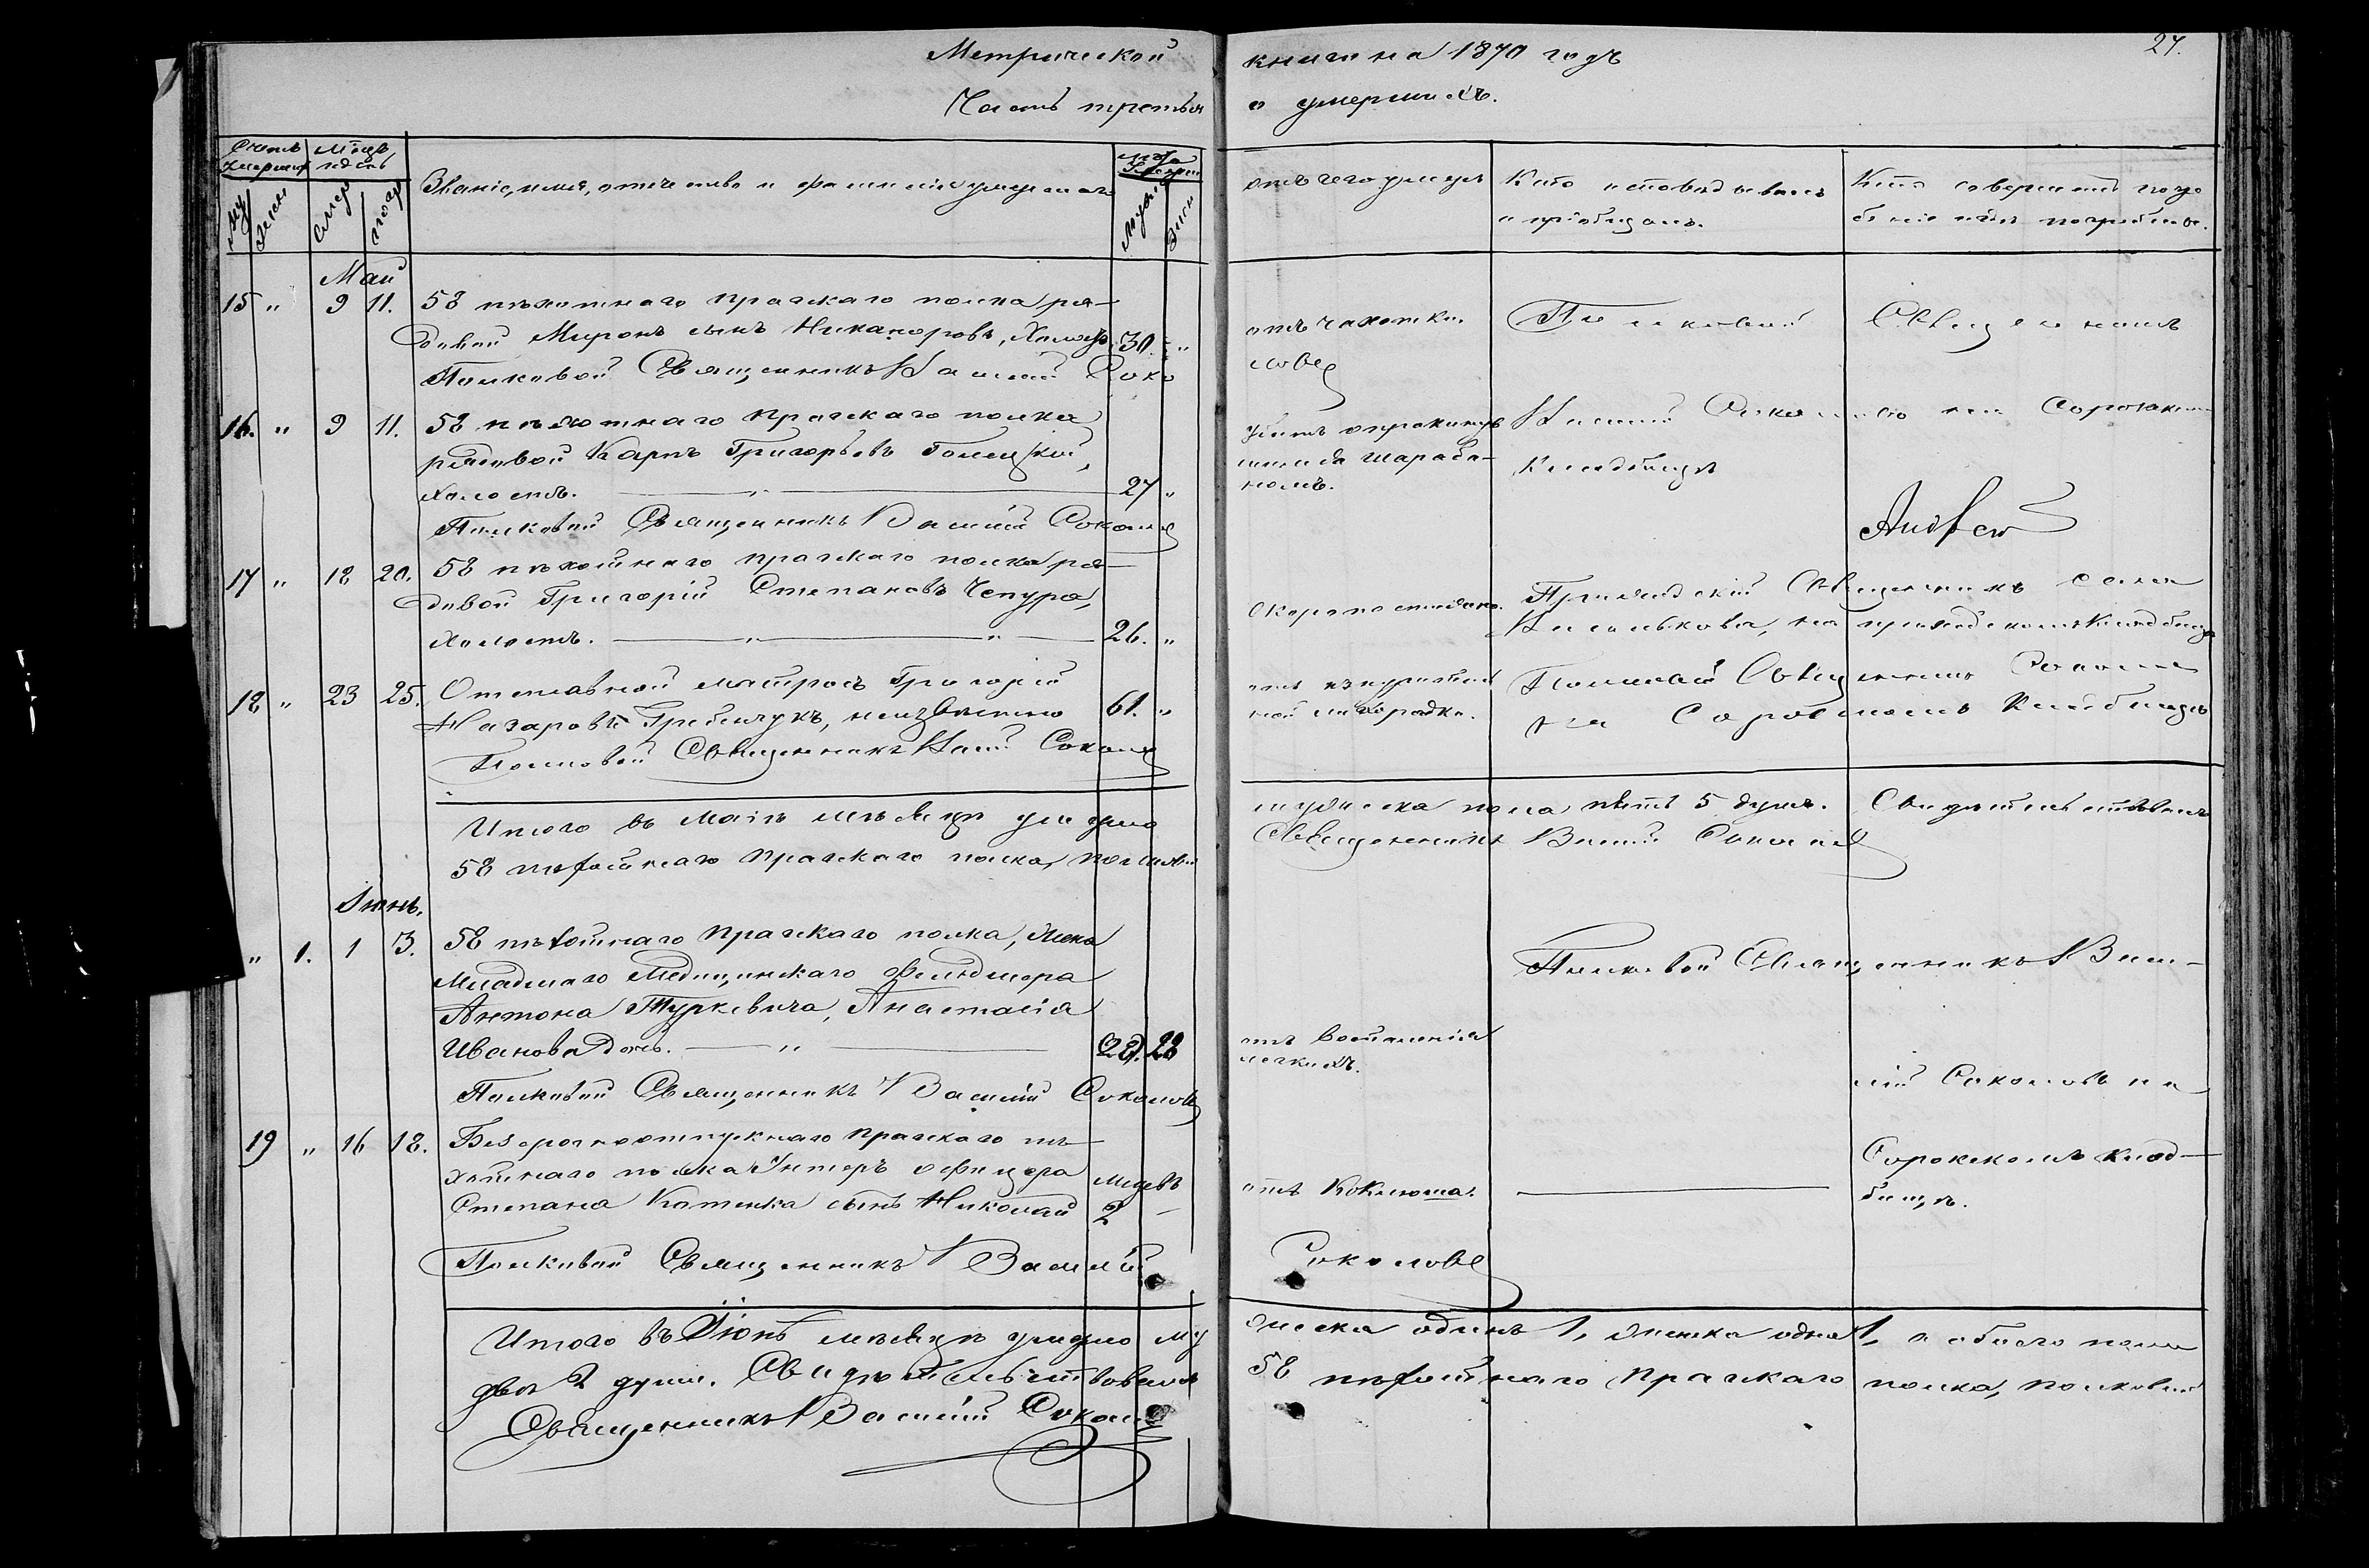 Метрической книги на 1870 годъ
27.
Часть третья о умершихъ.
Счетъ умершихъ
Мѣсяцъ и день
Званіе, имя, отчество и фамилія умершаго
Лѣта умерш
Му
Жен
Смер
Погр
Мужес
Жен
отъ чего умеръ
Кто исповѣдывалъ и пріобщалъ.
Кто совершалъ погребеніе и гдѣ погребены.
Май
15 " 9 11. 58 пѣхотнаго Пражскаго полка ря-
довой Миронъ сынъ Никаноровъ, Холостъ. 30. "
отъ чахотки.
Полковой Священникъ
Полковой Священникъ Василій Соко
ловъ
16. " 9 11. 58 пѣхотнаго Пражскаго полка
рядовой Карпъ Григорьевъ
Холостъ. 27 "
убитъ
шараба-
номъ.
Василій
Кладбищѣ
Полковой Священникъ Василій Соколовъ
17 " 18 20. 58 пѣхотнаго Пражскаго полка ря-
довой Григорій Степановъ Чепура,
холостъ. 26. "
Скоропостижно.
Приходскій Священникъ села
Василькова, на приходскомъ Кладбищѣ
18 " 23 25. Отставной матросъ Григорій
Назаровъ Гребенчукъ, неизвѣстно 61. "
отъ изнурительной лихорадки.
Полковой Священникъ Соколовъ
на Сорокскомъ Кладбищѣ
Полковой Священникъ Васил Соколовъ
Итого въ Маѣ мѣсяцѣ умерло мужеска пола пять 5 душъ. Свидѣтельствовалъ
58 пѣхотнаго Пражскаго полка, полковой Священникъ Василій Соколовъ
Іюнь.
" 1. 1 3. 58 пѣхотнаго Пражскаго полка, Жена
Младшаго Медицинскаго Фельдшера
Антона Туркевича, Анастасія
Иванова дочь. 28
отъ воспаленія легкихъ.
Полковой Священникъ Васи-
лій Соколовъ на
Сорокскомъ клад-
бищѣ.
Полковой Священникъ Василій Соколовъ
19 " 16 18. Безсрочноотпускнаго Пражскаго пѣ-
хотнаго полка Унтеръ офицера
Степана Котенка сынъ Николай
Мцевъ 2 -
отъ Коклюша.
Полковой Священникъ Василій Соколовъ
Итого въ Іюнѣ мѣсяцѣ умерло мужеска одинъ 1, женска одна 1, а обоего пола
двѣ 2 души. Свидѣтельствовалъ 58 пѣхотнаго Пражскаго полка, полковой
Священникъ Василій Соколовъ